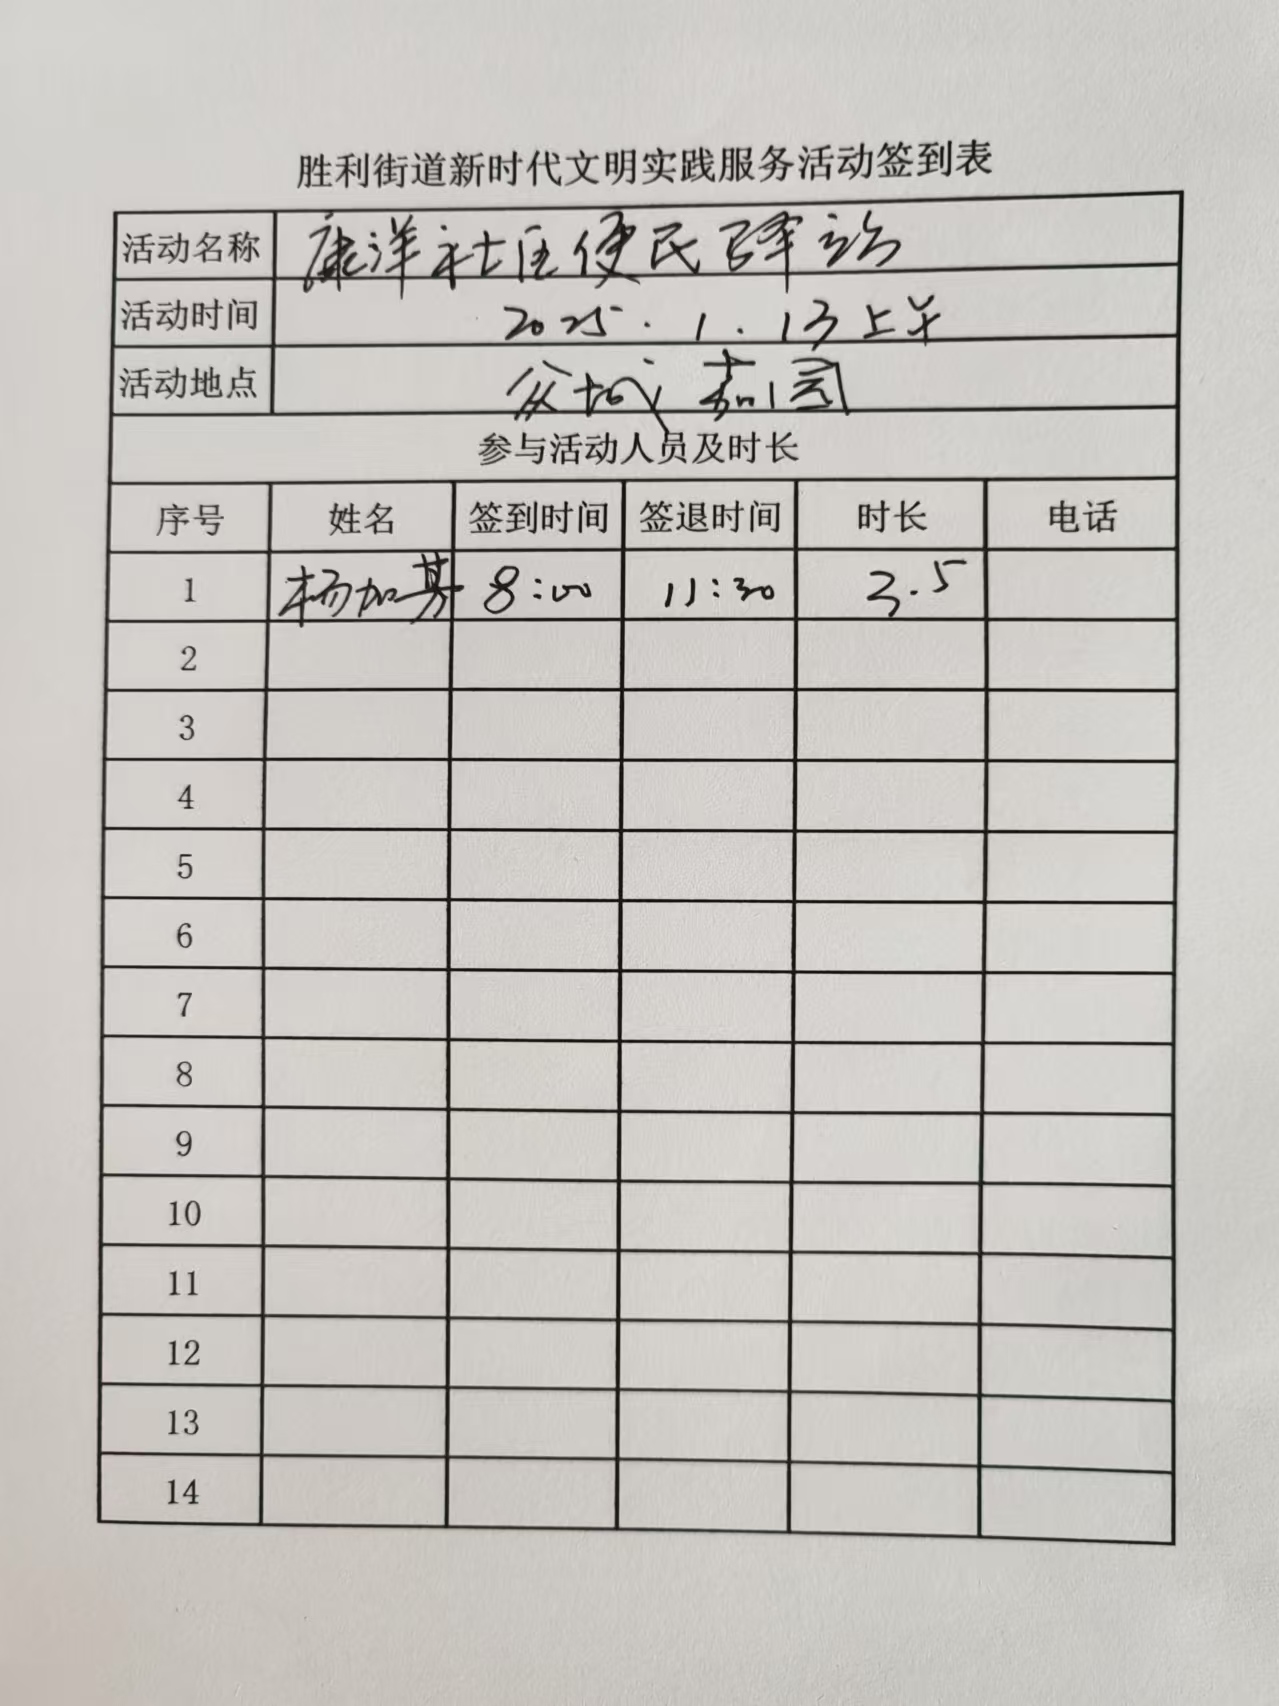 胜利街道新时代文明实践服务活动签到表
活动名称 康洋社区便民驿站
活动时间 2025.1.13上午
活动地点 众城嘉园
参与活动人员及时长
序号 姓名 签到时间 签退时间 时长 电话
1 杨加 8:00 11:30 3.5
2
3
4
5
6
7
8
9
10
11
12
13
14